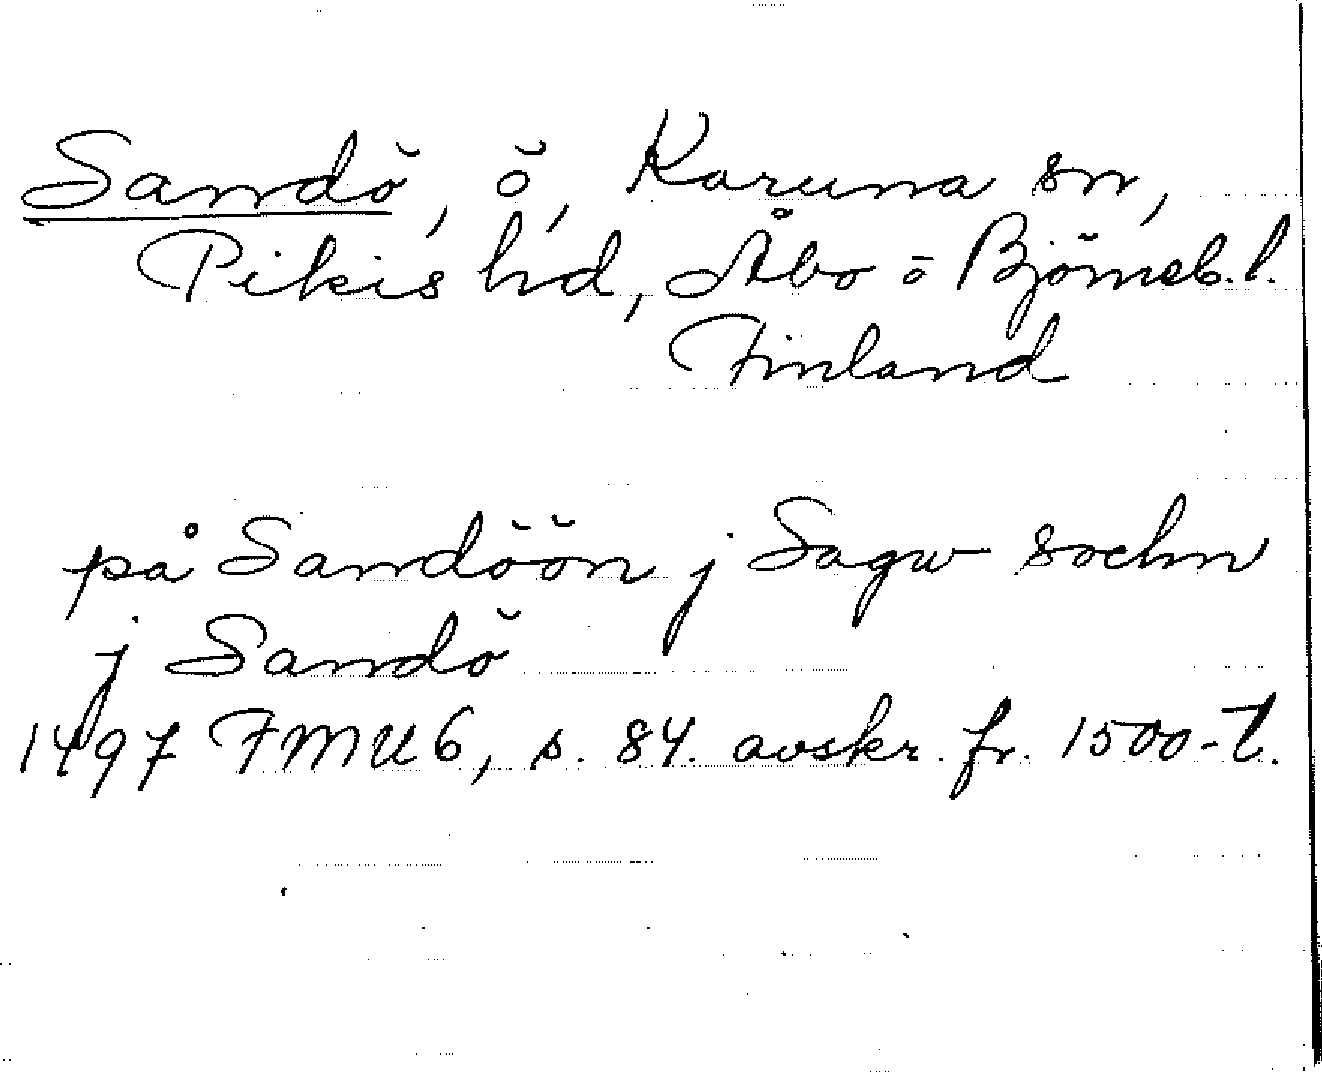 Sandö, ö, Karuna sn,
Pikis hd, Åbo o Björneb. l.
Finland
på Sandöön j Sagw sochn
j Sandö
1497 FMU 6, s. 84. avskr. fr. 1500-t.